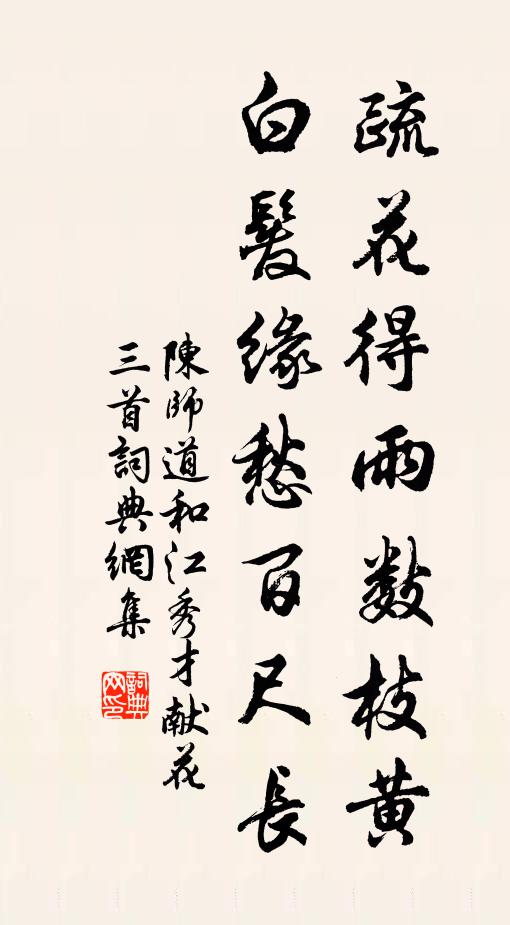 疏花得雨數枝黃
白髮緣愁百尺長
陳師道和江秀才献花
三首詞典網集
詞典
网印